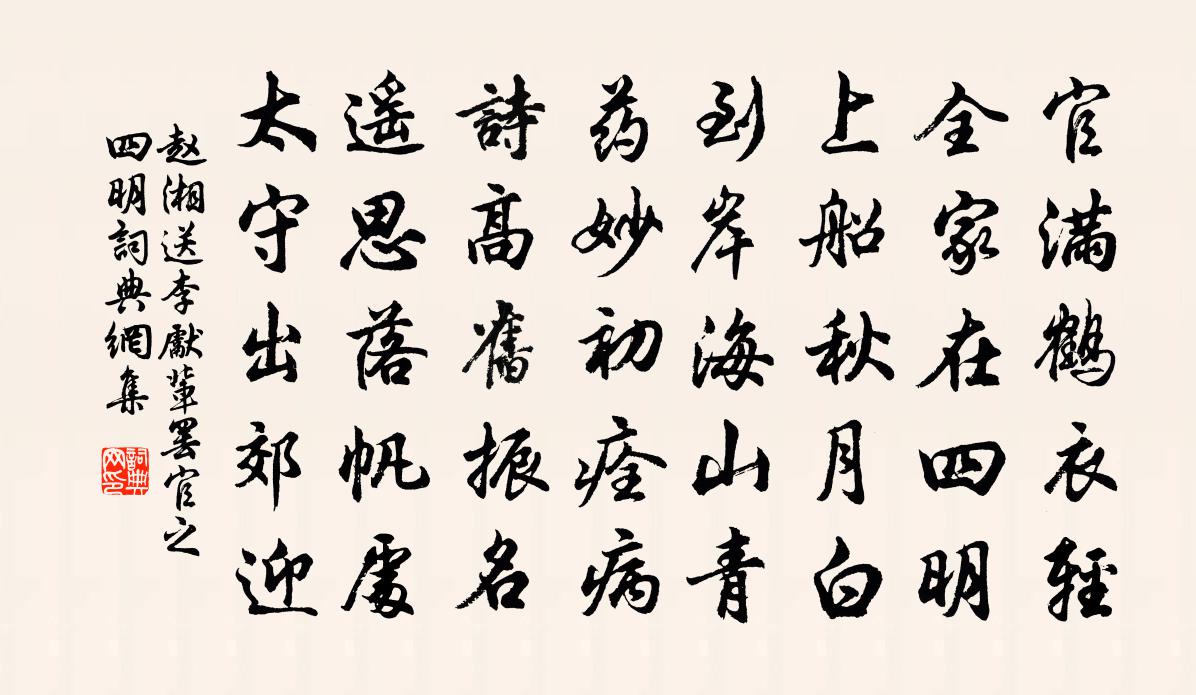 官滿鶴衣輕
全家在四明
上船秋月白
到岸海山青
药妙初痊病
詩高舊振名
遥思落帆處
太守出郊迎
赵湘送李獻輩罢官之
四明詞典網集
詞典
网印